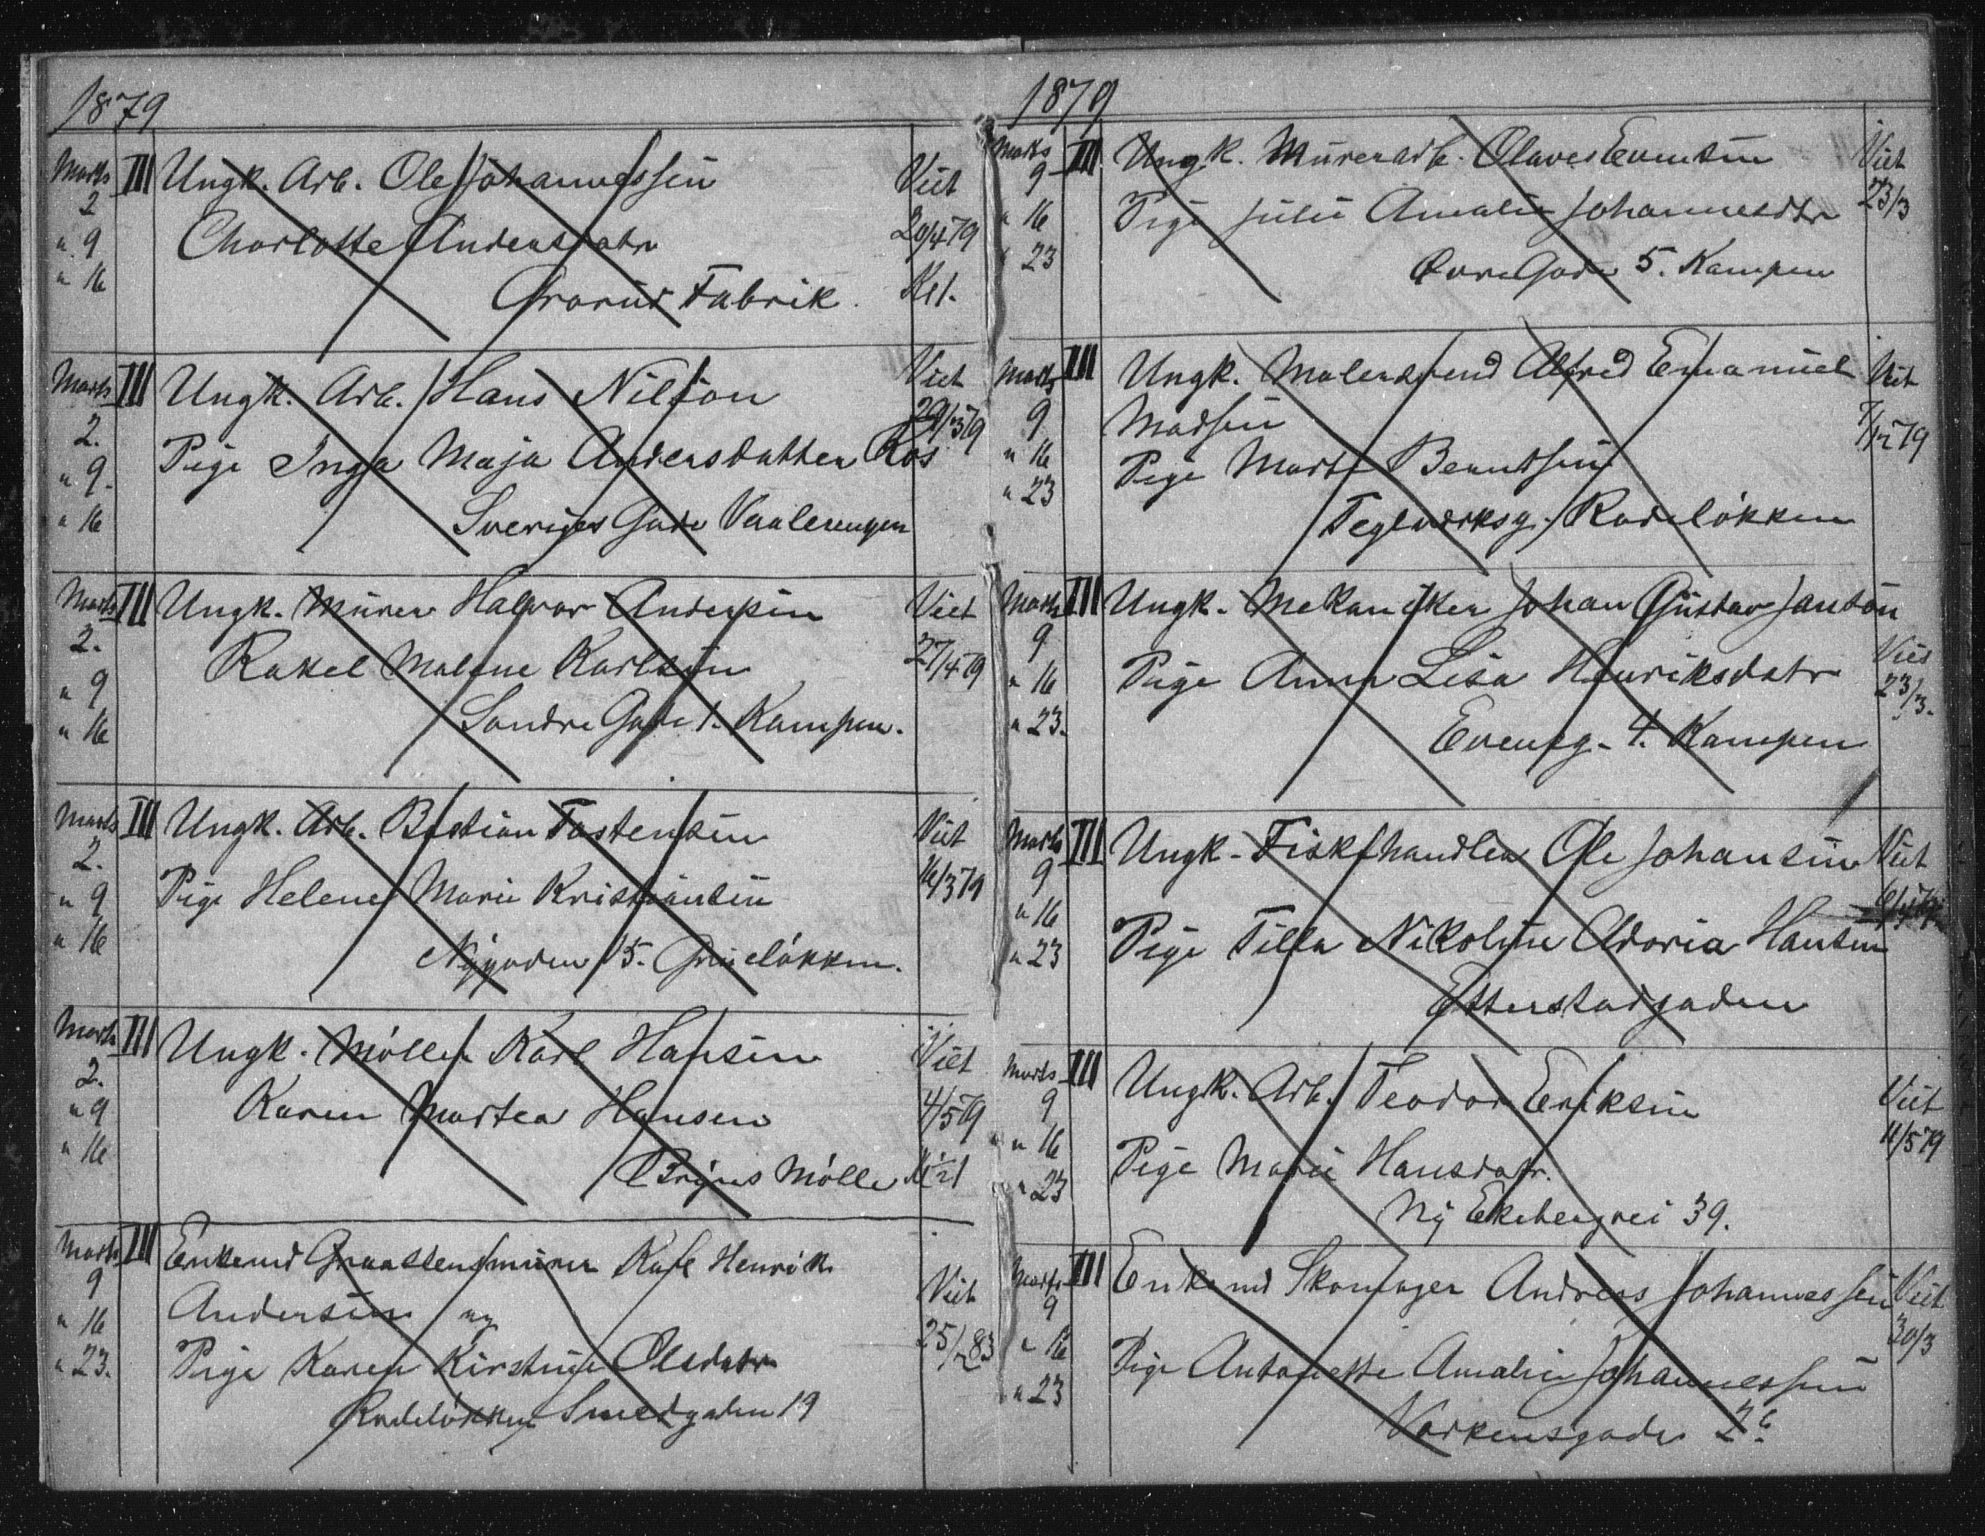 1879
Marts III Ungk. Arb. Ole Johannessen Viet
2 Charlotte Andersdatr 20/4 79
" 9 Grorud Fabrik. Kl.
" 16
Marts III Ungk. Arb. Hans Nilson Viet
2. 29/3 79
" 9. Pige Inga Maja Andersdatter Ros
" 16 Sveriges Gade Vaalerengen
Marts III Ungk. Murer Halvor Andersen Viet
2. Rakel Malene Karlsen 27/4 79
" 9 Søndre Gade 1. Kampen.
" 16
Marts III Ungk. Arb. Bastian Tostensen Viet
2. Pige Helene Marie Kristiansen 16/3 79
" 9 Nygaden 15. Grüneløkken.
" 16
Marts III Ungk. Møller Karl Hansen Viet
2. Karen Martea Hansen 4/5 79
" 9 Brynes Mølle
" 16
Marts III Enkemd Graastensmurer Karl Henrik
9 Andersen og Viet
" 16 Pige Karen Kirstine Olsdatr 25/ 83
" 23. Rodeløkken Smedgaden 19
1879
Marts III Ungk. Murerarb. Olaves Evensen Viet
9 Pige Julie Amalie Johannesdtr 23/3
" 16 Øvre Gade 5. Kampen
" 23
Marts III Ungk. Malersvend Alfred Emanuel Viet
9 Madsen 7/12 79
" 16 Pige Marte Berntsen
" 23 Teglverksg. Rodeløkken
Marts III Ungk. Mekaniker Johan Gustav Janson
9 Viet
" 16 Pige Anna Lisa Henriksdatr 23/3.
" 23. Evensg. 4. Kampen
Marts III Ungk. Fiskehandler Ole Johansen Viet
9
" 16 Pige Tilla Nikoline Adoria Hansen
" 23 Etterstadgaden
Marts III Ungk. Arb. Teodor Eriksen Viet
9 11/5 79
" 16 Pige Marie Hansdatr.
" 23 Ny Ekebergvei 39.
Marts III Enkemd Skomager Andreas Johannessen Viet
9 30/3
" 16 Pige Antonette Amalie Johannessen
" 23 Vorkensgade 26